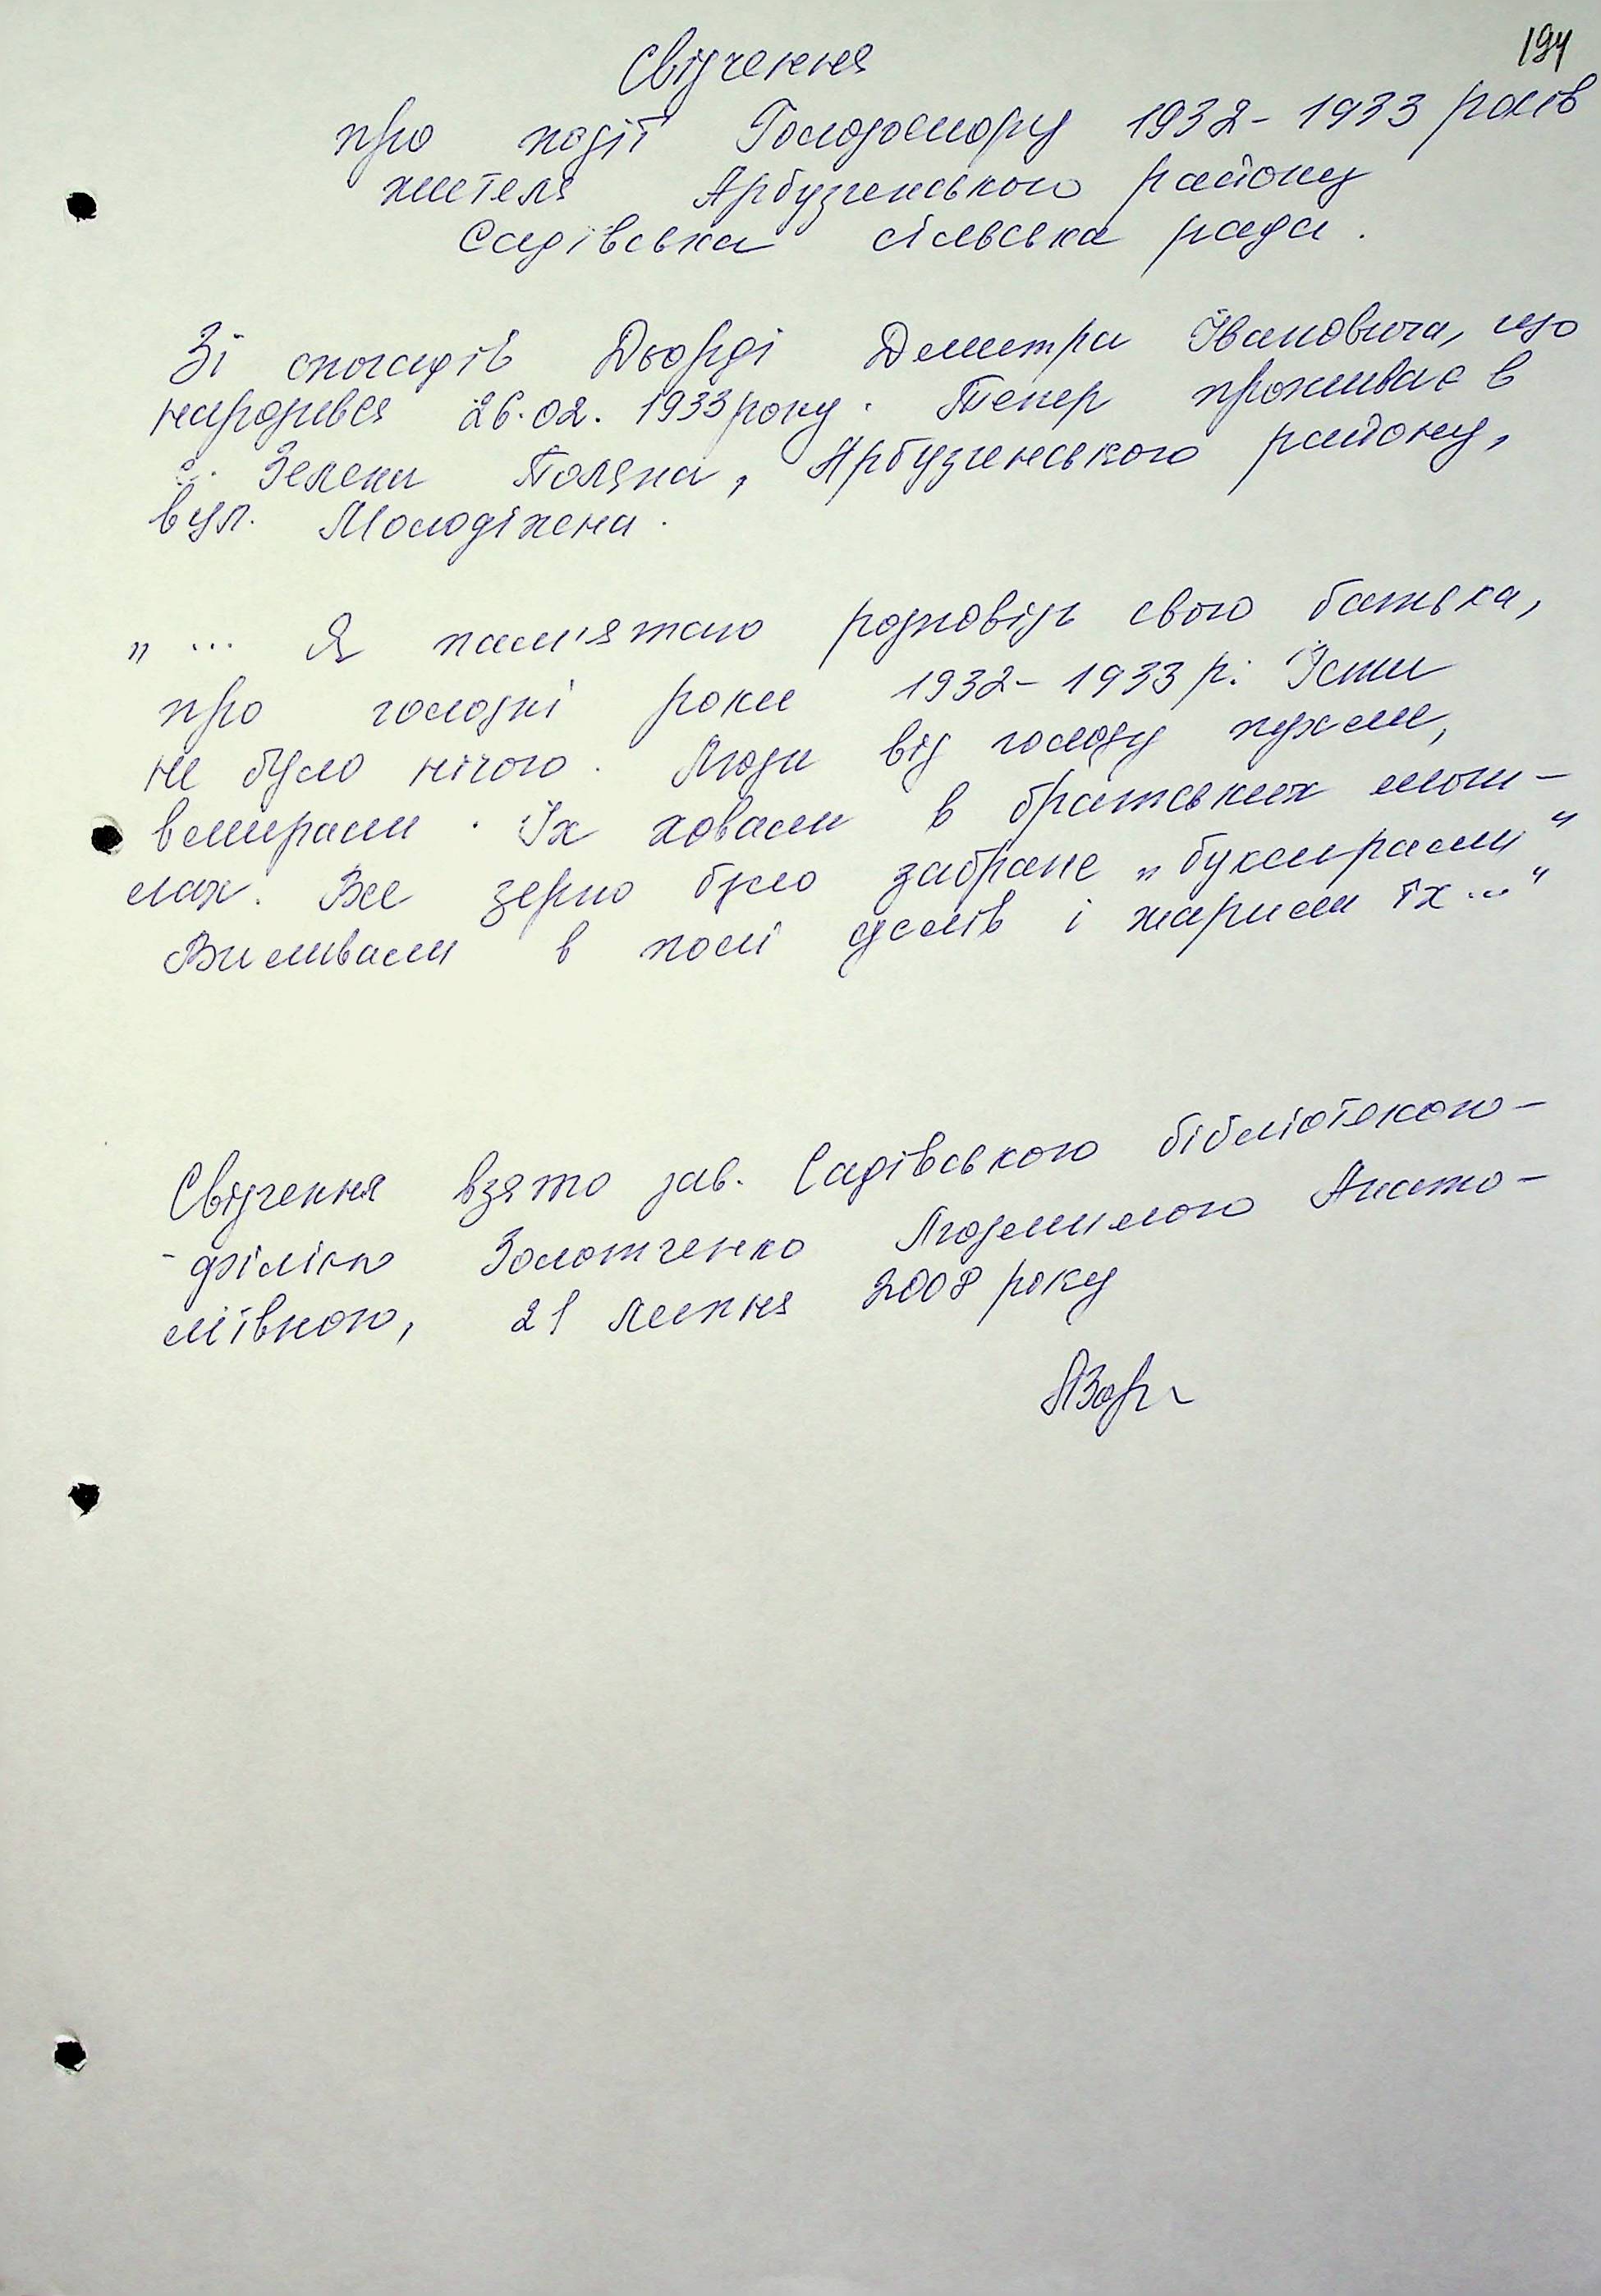 194
Свідчення
про події Голодомору 1932-1933 років
жителя Арбузинського району
Садівська сільська рада.
Зі спогадів Дьорді Дмитра Івановича, що
народився 26.02. 1933 року. Тепер проживає в
с. Зелена Поляна, Арбузинського району,
вул. Молодіжна.
„ ... Я пам'ятаю розповідь свого батька,
про голодні роки 1932-1933 р. Їсти
не було нічого. Люди від голоду пухли,
вмирали. Їх ховали в братських моги-
лах. Все зерно було забране „буксирами"
Виливали в полі ховрахів і жарили їх..."
Свідчення взято зав. Садівською бібліотекою-
-філією Золотченко Людмилою Анато-
ліївною, 21 липня 2008 року